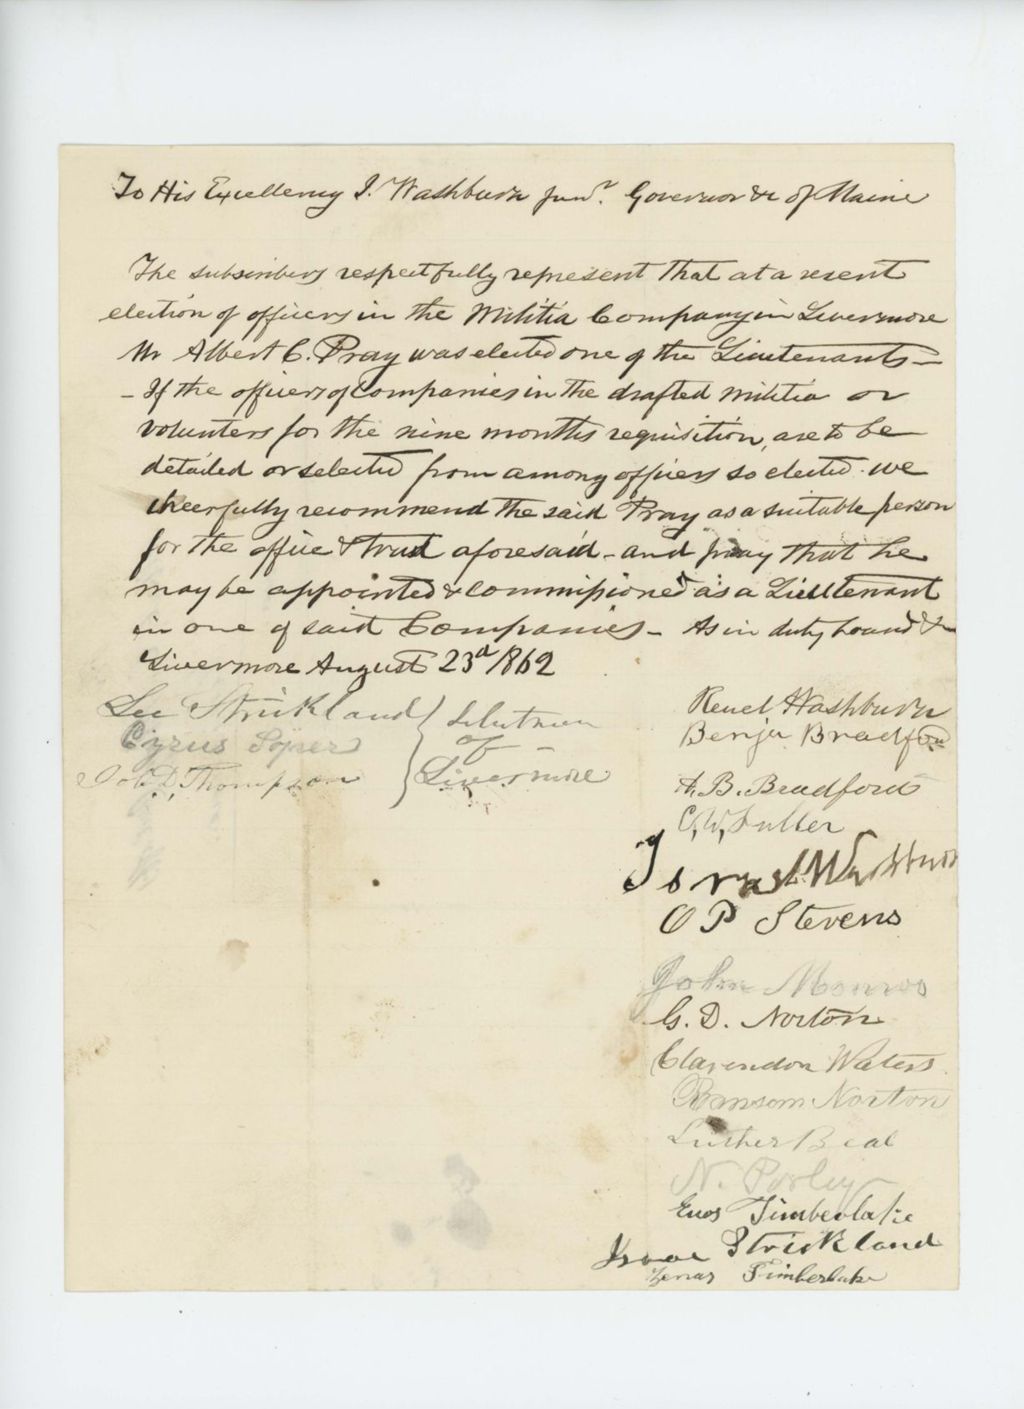 To His Excellency I. Washburn Junr. Governor &c of Maine
The subscribers respectfully represent that at a recent
election of officers in the Militia Company in Livermore
Mr Albert C. Pray was elected one of the Lieutenants —
- If the officers of Companies in the drafted militia or
volunters for the nine months requisition, are to be
detailed or selected from among officers so elected. we
cheerfully recommend the said Pray as a suitable person
for the office & trust aforesaid - and pray that he
may be appointed & commissioned as a Lieutenant
in one of said Companies - As in duty bound &c
Livermore August 23d 1862
Lee Strickland } Selectmen
Cyrus Soper } of
Job D. Thompson } Livermore
Reuel Washburn
Benja Bradford
A. B. Bradford
C. W. Fuller
Washburn
O P Stevens
John Monroe
G. D. Norton
Clarendon Waters
Ransom Norton
Luther Beal
N. Perley
Enos Timberlake
Isaac Strickland
Zenas Timberlake